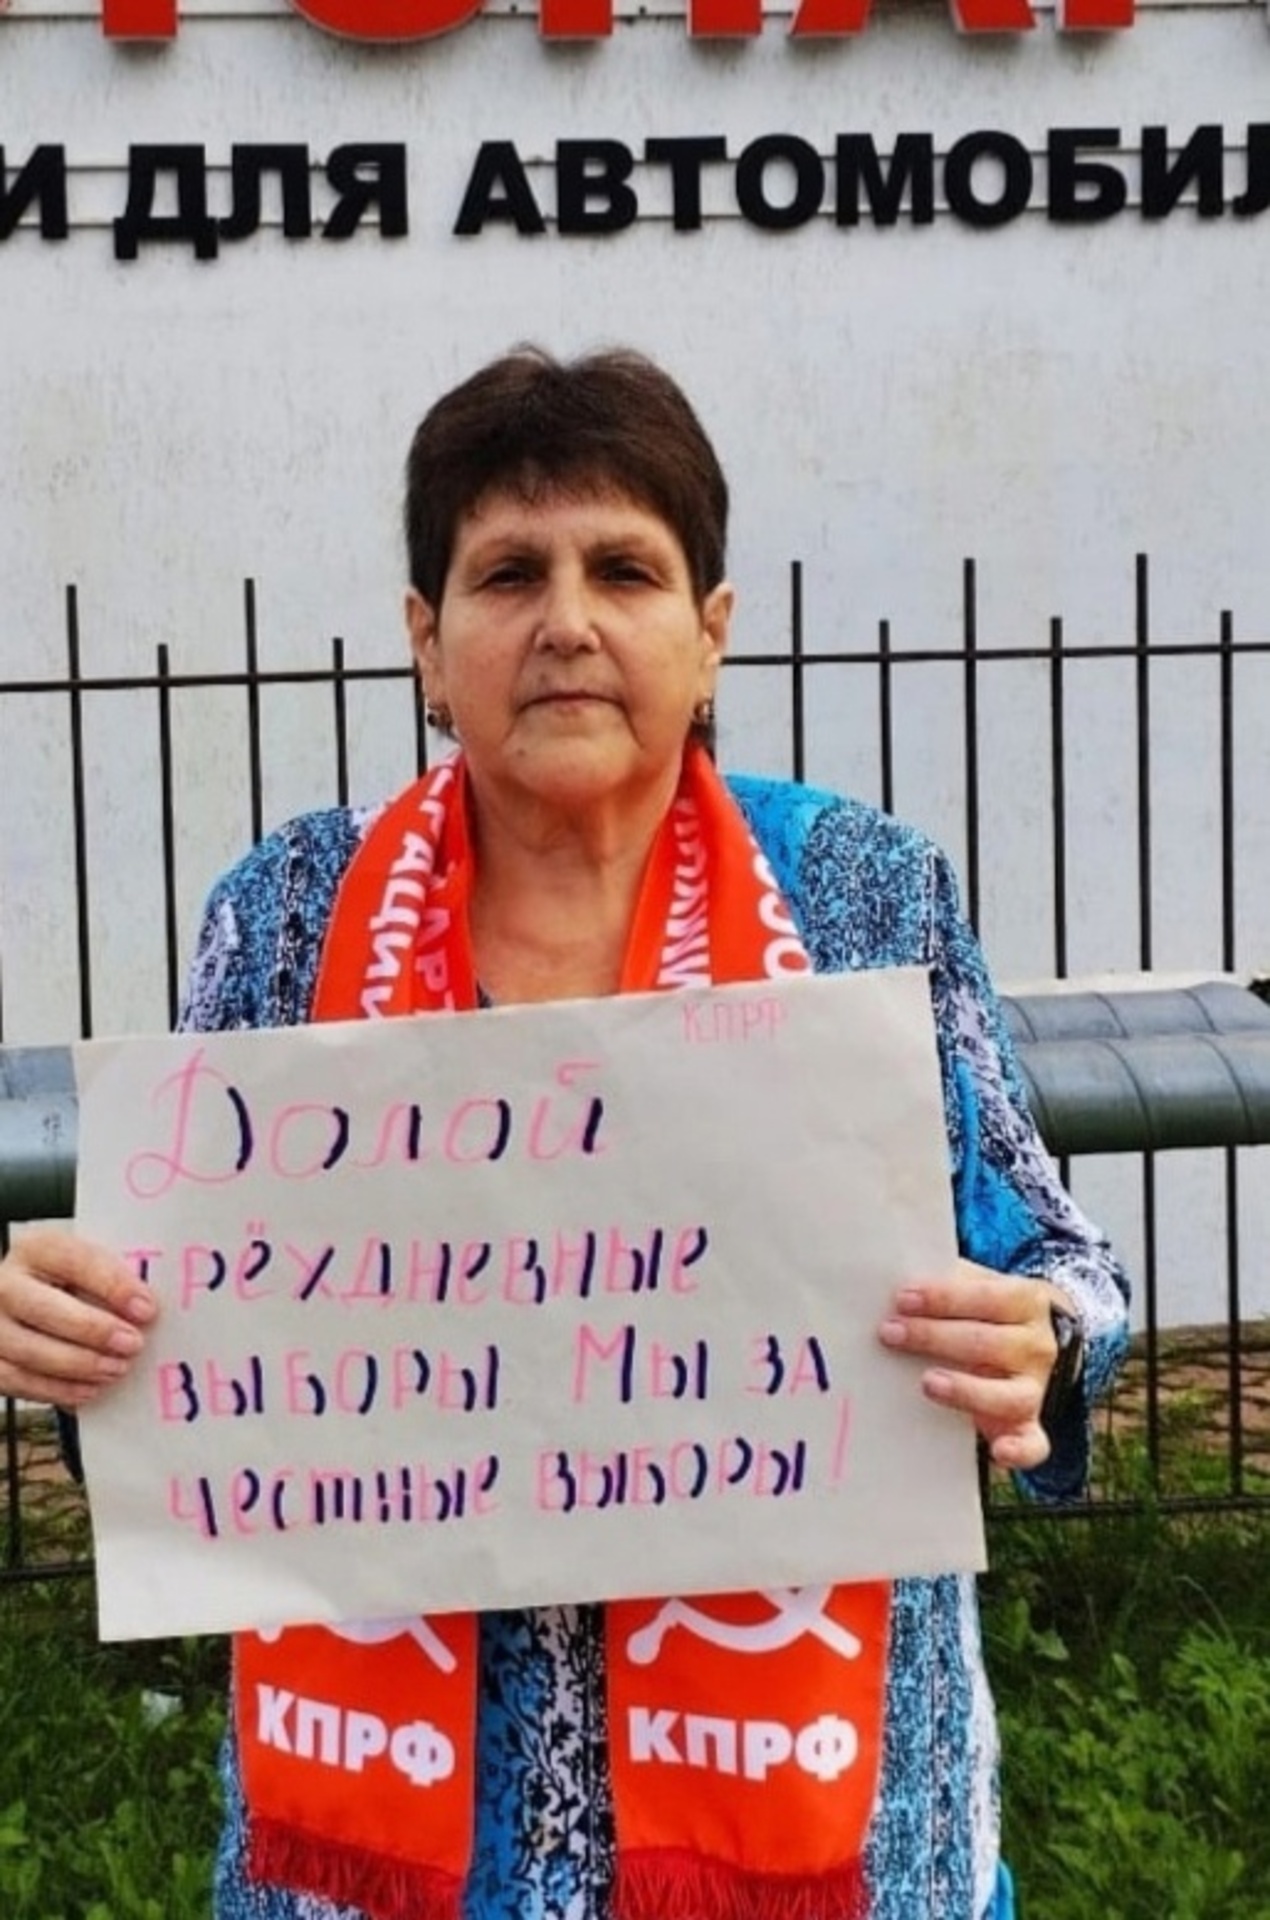 И ДЛЯ АВТОМОБИЛ
КПРФ
Долой
трёхдневные
выборы Мы за
честные выборы!
КПРФ
КПРФ